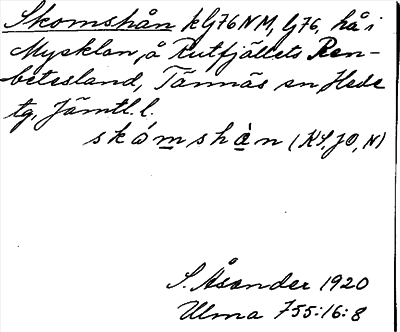 Skomshån k lj76NM, lj76, hå i
Mysklan, å Rutfjällets Ren-
betesland, Tännäs sn, Hede
tg, Jämtl. l.
skómshàn (KL, JO, N)
S. Åsander 1920
Ulma 755:16:8